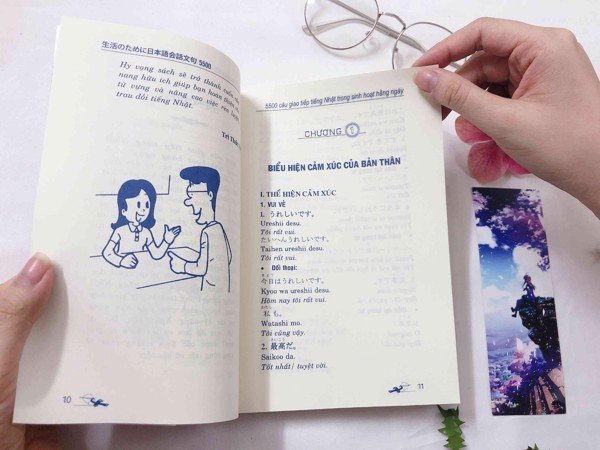 生活のために日本語会話文句 5500
Hy vọng sách sẽ trở thành cuốn
nang hữu ích giúp bạn hoàn thiện
từ vựng và nâng cao việc rèn luyện
trau dồi tiếng Nhật.
Tri Thức
10
5500 câu giao tiếp tiếng Nhật trong sinh hoạt hằng ngày
CHƯƠNG 1
BIỂU HIỆN CẢM XÚC CỦA BẢN THÂN
I. THỂ HIỆN CẢM XÚC
1. VUI VẺ
1. うれしいです。
Ureshii desu.
Tôi rất vui.
たいへんうれしいです。
Taihen ureshii desu.
Tôi rất vui.
• Đối thoại:
今日はうれしいです。
Kyoo wa ureshii desu.
Hôm nay tôi rất vui.
わたし
私も。
Watashi mo.
Tôi cũng vậy.
さいこう
2. 最高だ。
Saikoo da.
Tốt nhất / tuyệt vời.
11